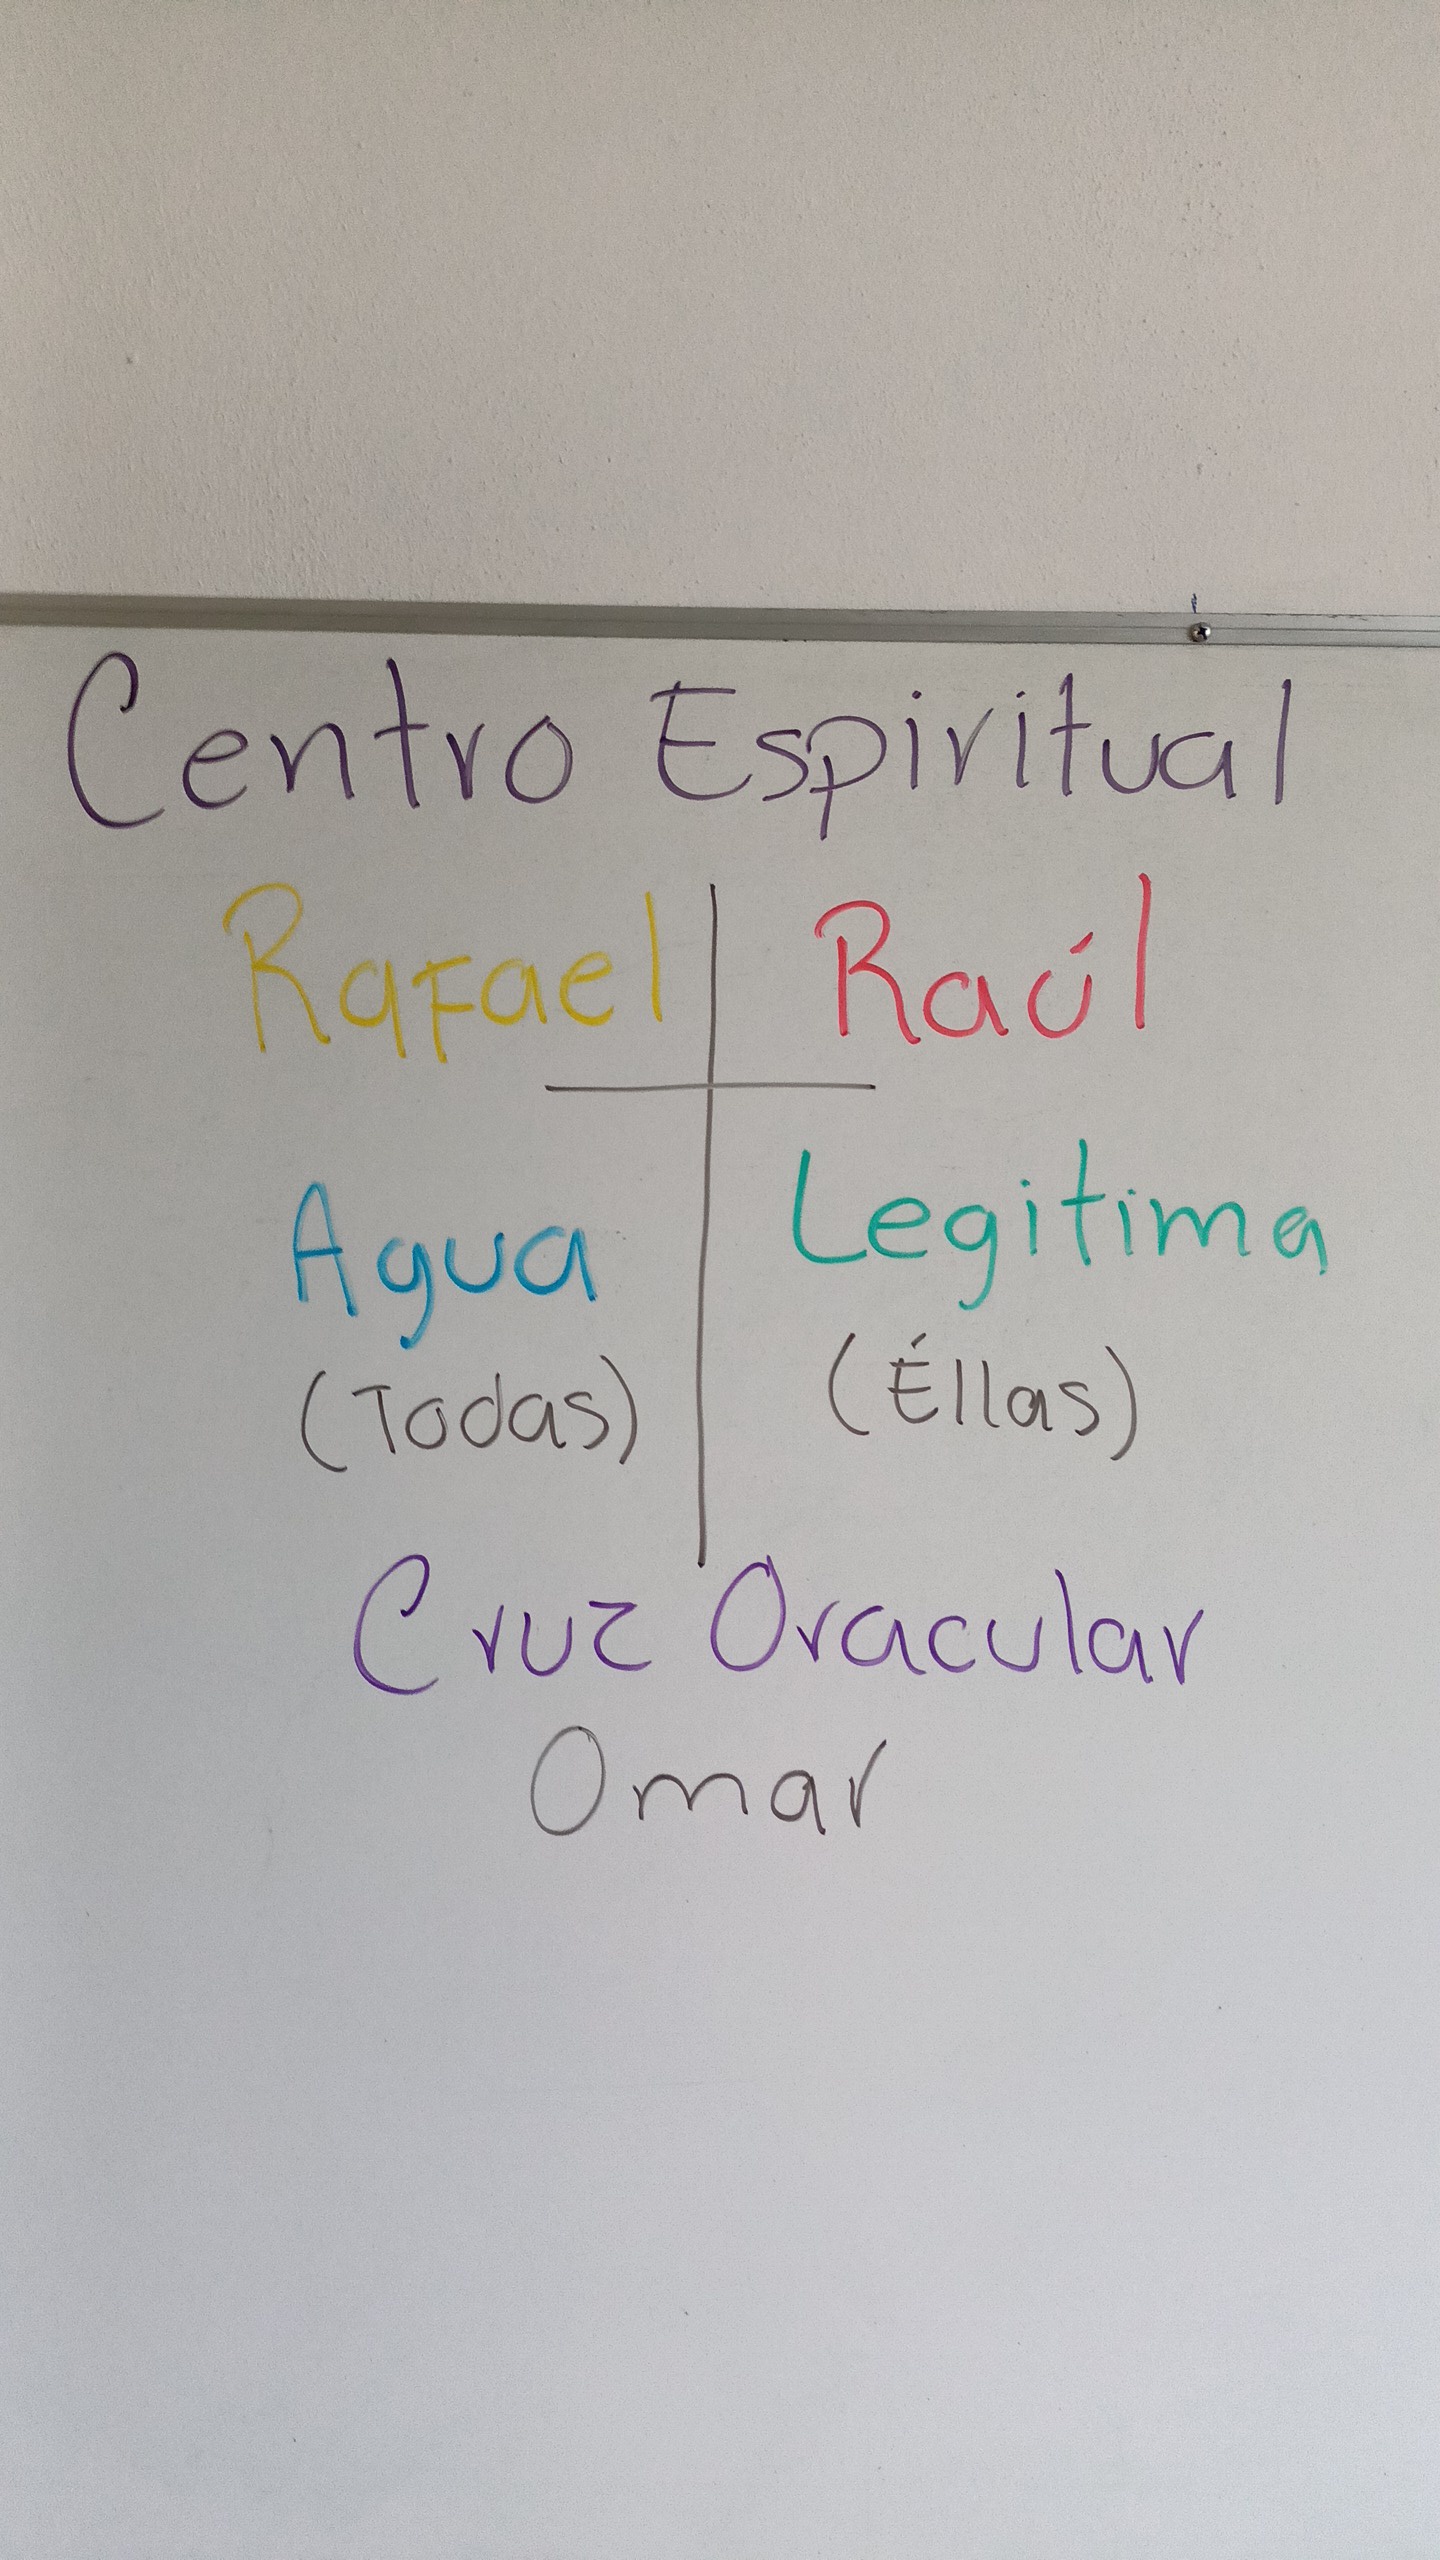 Centro Espiritual
Rafael Raúl
Agua Legitima
(Todas) (Éllas)
Cruz Oracular
Omar